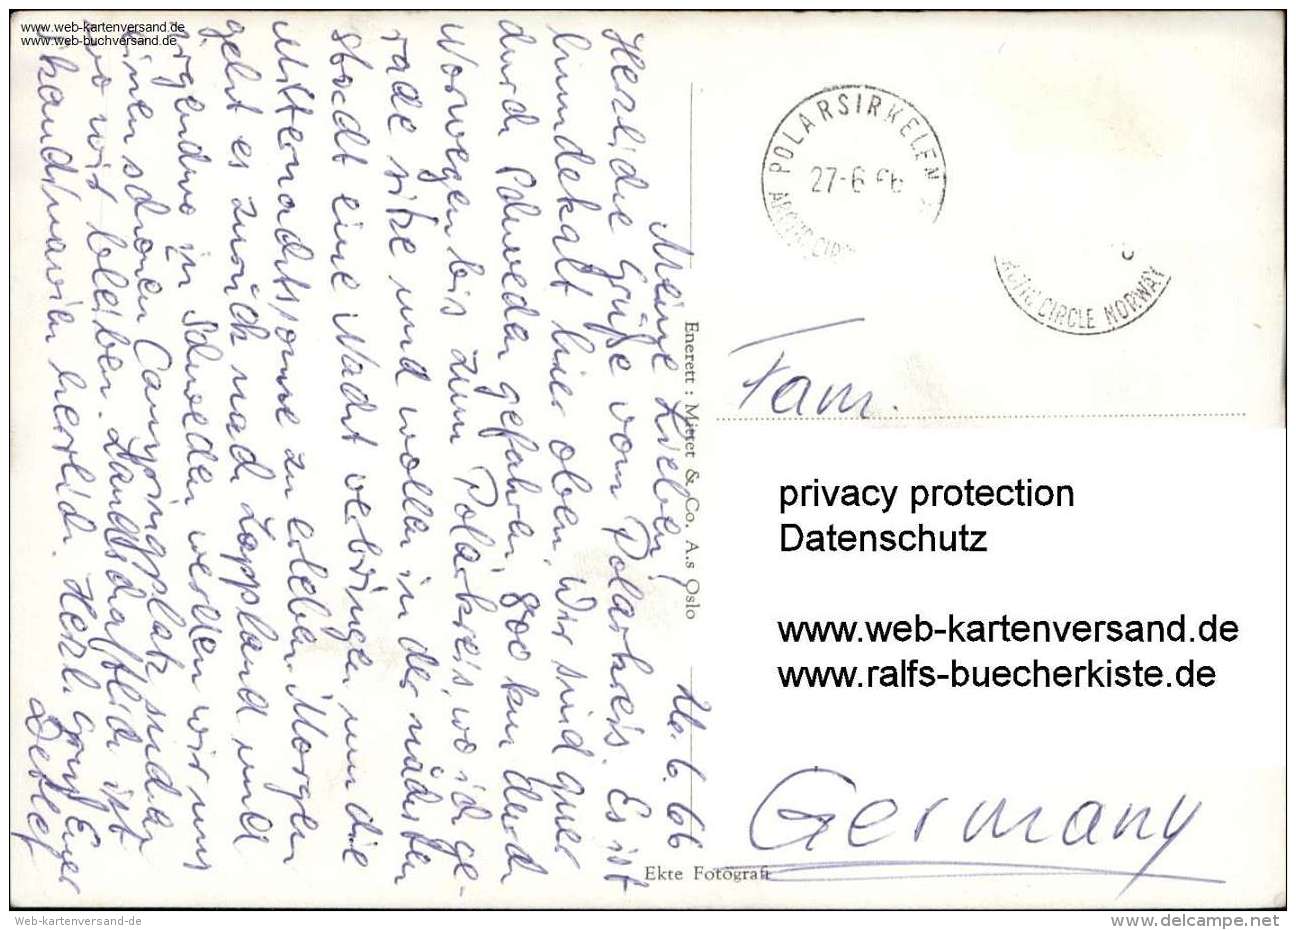 www.web-kartenversand.de
www.web-buchversand.de
26.6.66
Meine Lieben!
Herzliche Grüße vom Polarkreis. Es ist
hundekalt hier oben. Wir sind quer
durch Schweden gefahren, 800 km durch
Norwegen bis zum Polarkreis, wo ich ge-
rade sitze und wollen in der nächsten
Stadt eine Nacht verbringen um die
Mitternachtssonne zu erleben. Morgen
geht es zurück nach Lappland und
irgendwo in Schweden werden wir uns
einen schönen Campingplatz suchen
wo wir bleiben. Landschaftlich ist
Skandinavien herrlich. Herzl. Gruß Euer
Detlef
Enerett : Mittet & Co. A.s Oslo
Ekte Fotografi
POLARSIRKELEN
27-6
ARCTIC CIRC
ARCTIC CIRCLE NORWAY
Fam.
privacy protection
Datenschutz
www.web-kartenversand.de
www.ralfs-buecherkiste.de
Germany
Web-kartenversand-de
www.delcampe.net